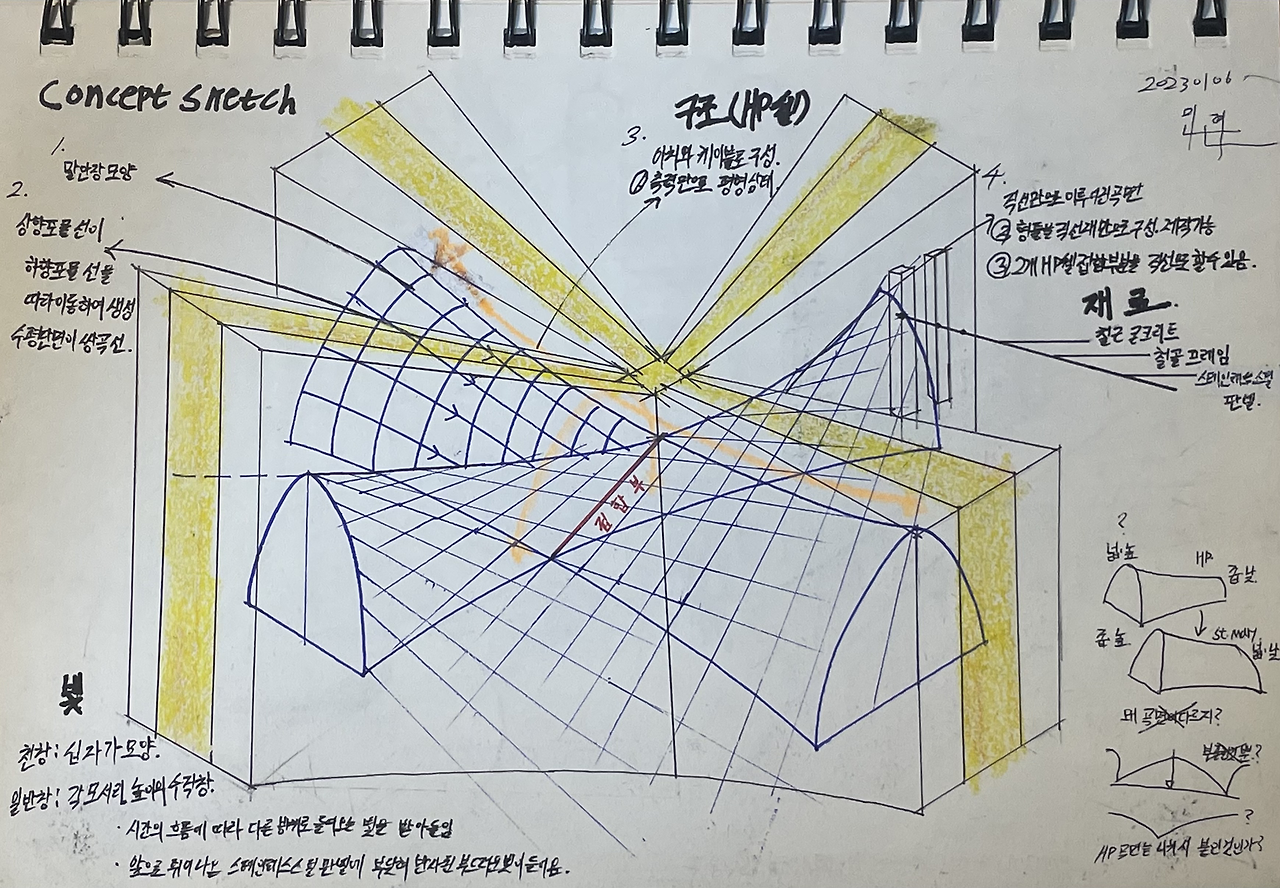 Concept sketch
20230106
1.
말안장모양
2.
상향포물선이
하향포물 선을
따라이동하여 생성
수평단면이 쌍곡선.
구조(HP쉘)
3.
아치와 케이블로 구성.
① 축력만으로 평형상태.
4.
직선만으로 이루어진곡면
② 형틀을 직선재만으로구성. 제작가능
③ 2개 HP쉘 접합부분을 직선으로 할수있음.
재료.
철근 콘크리트
철골 프레임
스테인레스스틸
판넬.
접합부
빛
천창: 십자가모양.
일반창: 각모서리 높이의 수직창.
· 시간의 흐름에 따라 다른 방위로 들어오는 빛을 받아들임
· 앞으로 튀어나온 스테인레스스틸 판넬에 부딪혀 반사된 부드러운빛이들어옴.
?
넓.높
HP.
좁.낮.
좁.높
St. Mary.
넓.낮
왜 곡면이다르지?
?
?
HP 쉘은 나눠서 붙인것인가?